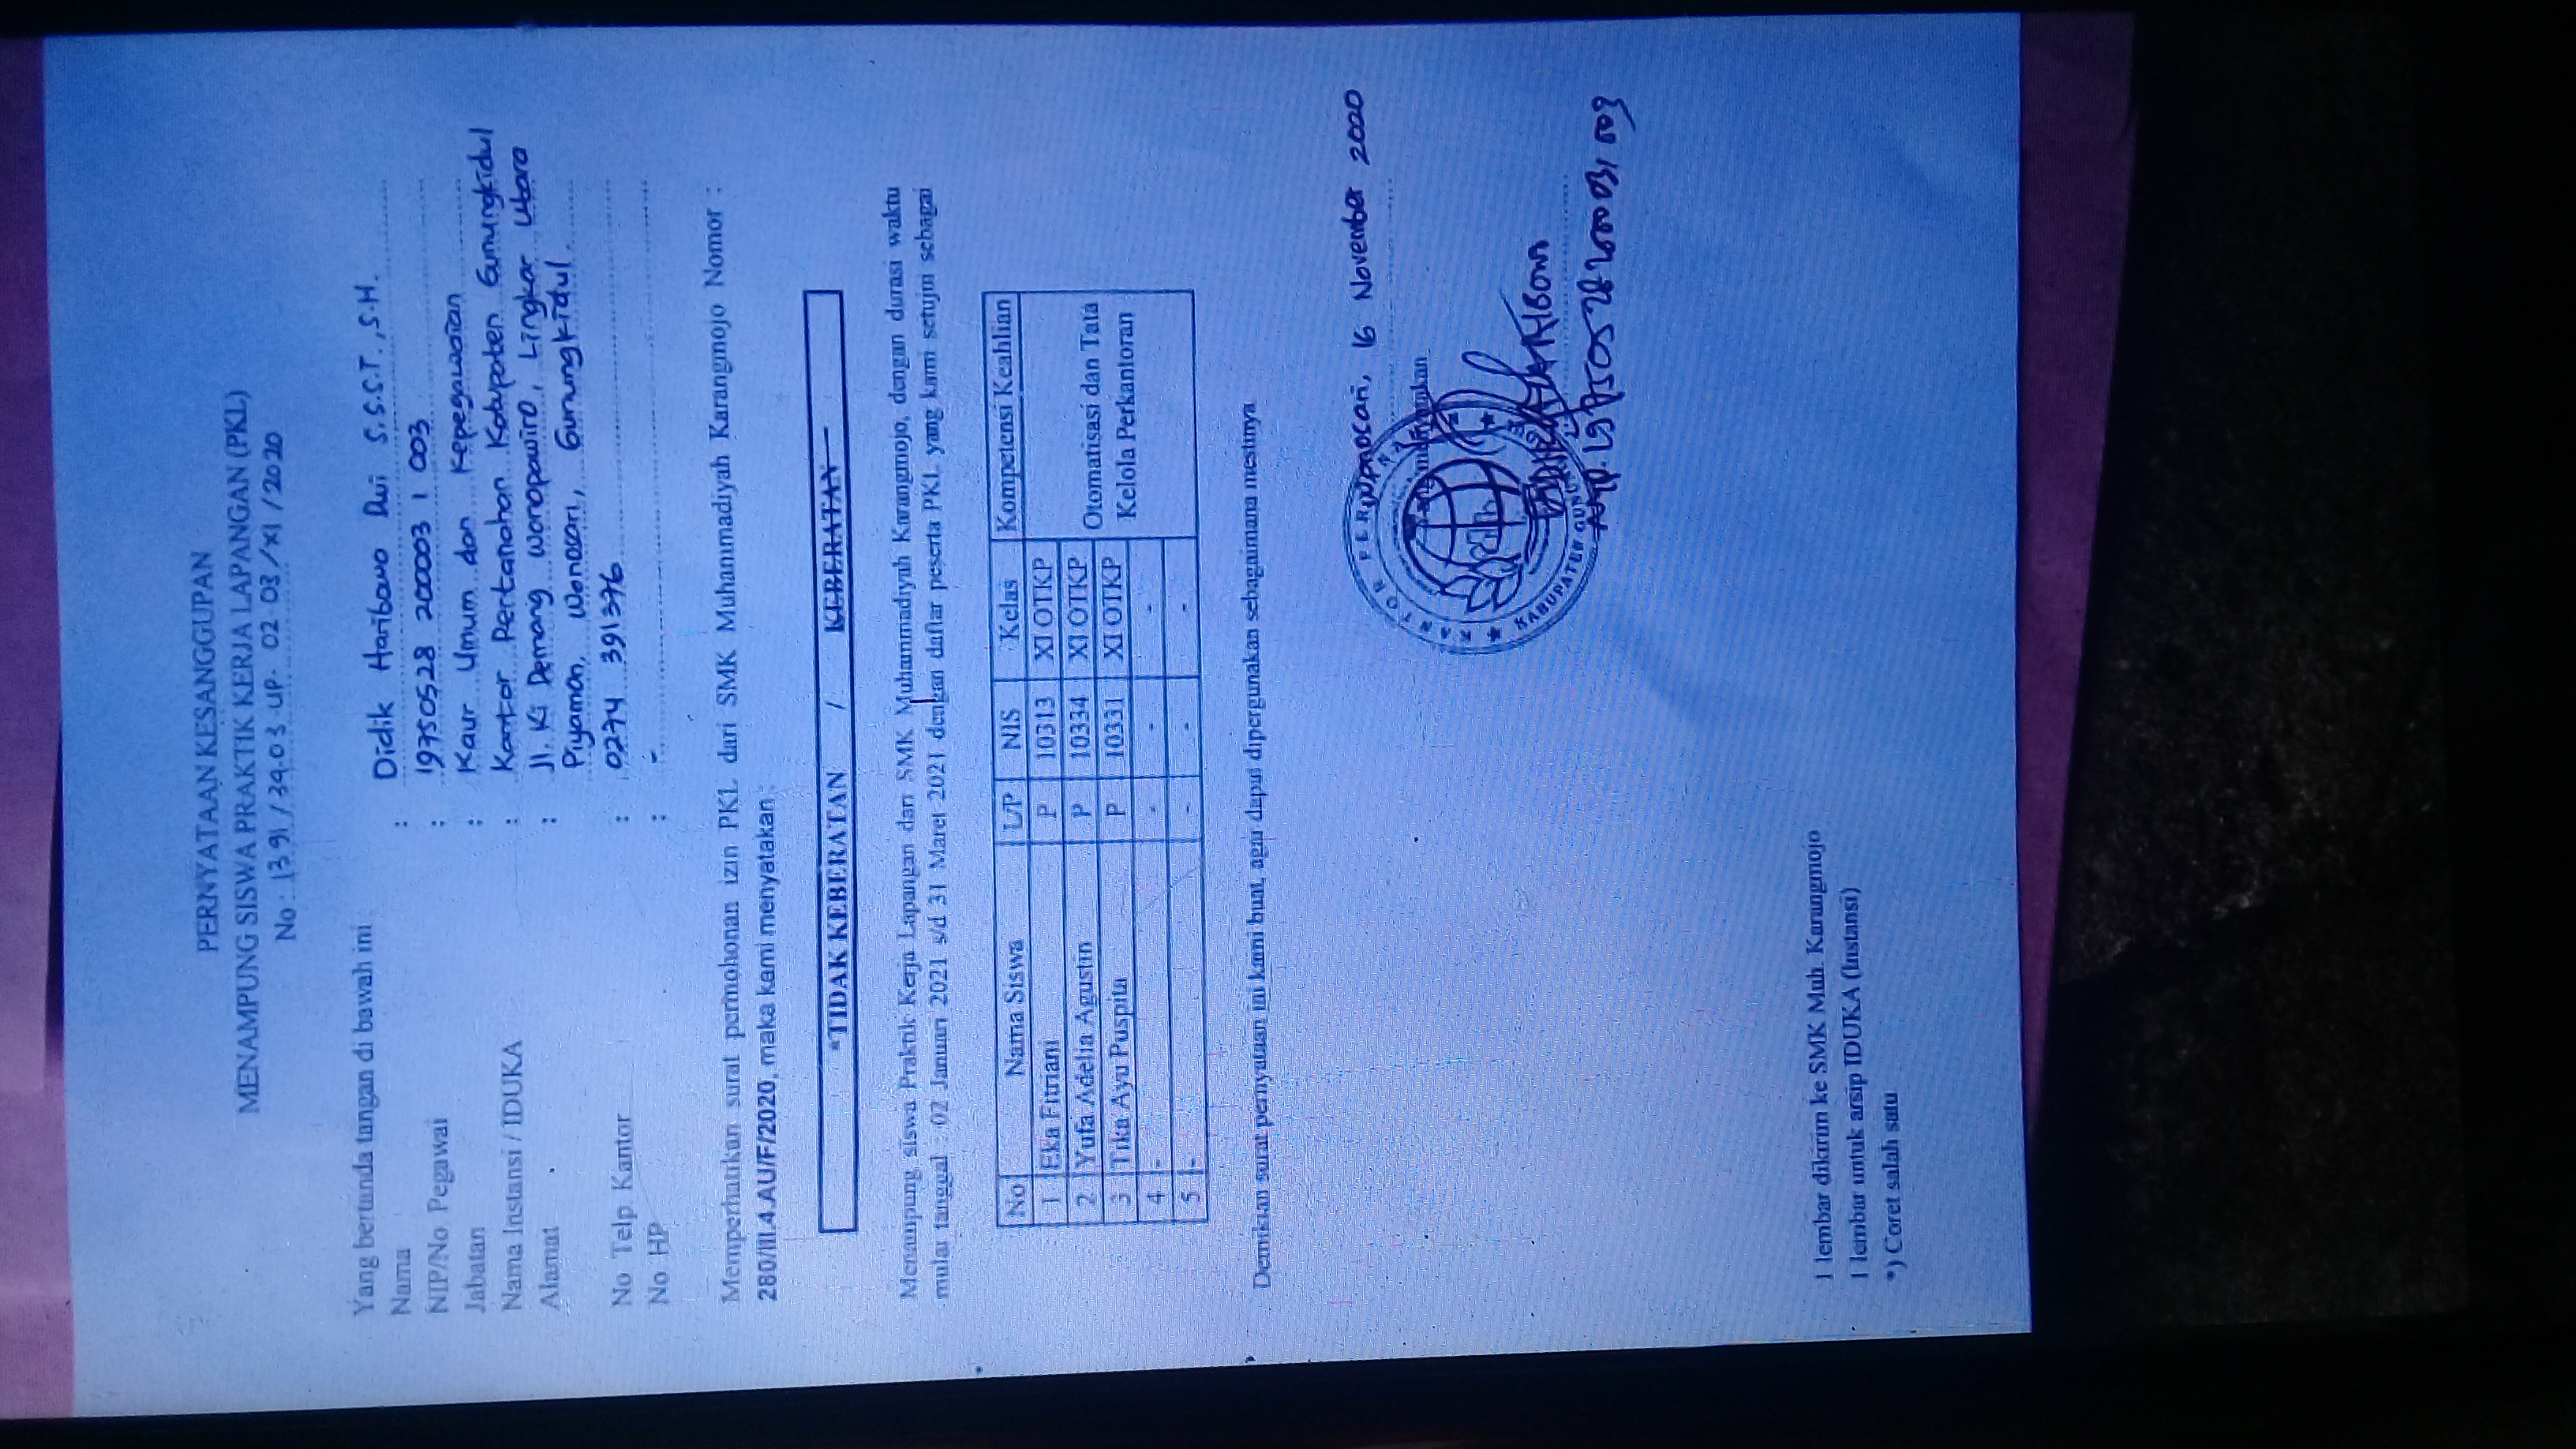 PERNYATAAN KESANGGUPAN
MENAMPUNG SISWA PRAKTIK KERJA LAPANGAN (PKL)
No : 1391 / 34.03 UP. 02 03 / XI / 2020
Yang bertanda tangan di bawah ini :
Nama : Didik Haribowo Dwi S.S.S.T., S.H.
NIP/No. Pegawai : 19750528 200003 1 003
Jabatan : Kaur Umum dan Kepegawaian
Nama Instansi / IDUKA : Kantor Pertanahan Kabupaten Gunungkidul
Alamat : Jl. Ki Demang Wonopawiro, Lingkar Utara
Piyaman, Wonosari, Gunungkidul.
No Telp Kantor : 0274 391376
No HP : -
Memperhatikan surat permohonan izin PKL dari SMK Muhammadiyah Karangmojo Nomor :
280/III.4.AU/F/2020, maka kami menyatakan :
*TIDAK KEBERATAN / KEBERATAN
Menampung siswa Praktik Kerja Lapangan dari SMK Muhammadiyah Karangmojo, dengan durasi waktu
mulai tanggal : 02 Januari 2021 s/d 31 Maret 2021 dengan daftar peserta PKL yang kami setujui sebagai
No Nama Siswa L/P NIS Kelas Kompetensi Keahlian
1 Eka Fitriani P 10313 XI OTKP
2 Yufa Adelia Agustin P 10334 XI OTKP
3 Tika Ayu Puspita P 10331 XI OTKP
4 - - - -
5 - - - -
Otomatisasi dan Tata
Kelola Perkantoran
Demikian surat pernyataan ini kami buat, agar dapat dipergunakan sebagaimana mestinya
Wonosari, 16 November 2020
Yang menyatakan
KANTOR
KABUPATEN
NIP. 19750528 200003 1 003
1 lembar dikirim ke SMK Muh. Karangmojo
1 lembar untuk arsip IDUKA (Instansi)
*) Coret salah satu